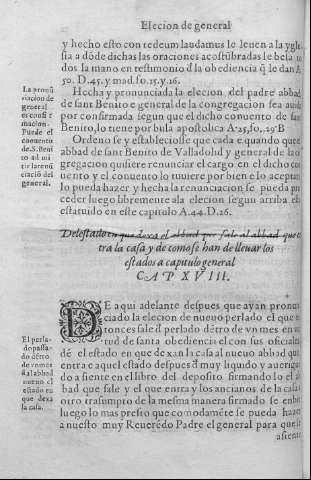 Elecion de general
y hecho esto con tedeum laudamus le lleuen a la ygle
sia a dōde dichas las oraciones acostūbradas le besā to
dos la mano en testimonio d̄ la obediencia q̄ le dan A.
50. D.45. y mad. fo.15.y.16.
Hecha y pronunciada la elecion del padre abbad
de sant Benito e general de la congregacion sea auida
por confirmada segun que el dicho conuento de san
Benito, lo tiene por bula apostolica A.25.fo..29.B
Ordeno se y establesciosse que cada e quando que el
abbad de sant Benito de Valladolid y general de la cō
gregacion quisiere renunciar el cargo en el dicho con
uento y el conuento lo tuuiere por bien e lo aceptare
lo pueda hazer y hecha la renunciacion se pueda pro
ceder luego libremente ala elecion segun arriba es
estatuido en este capitulo A.44.D.26.
La pronū
ciacion de
general
es confir
macion.
Puede el
conuento
de.S.Beni
to admi
tir la renū
ciació del
general.
Del estado en que dexa el abbad que sale al abbad que en
tra la casa y de como se han de lleuar los
estados a capitulo general
CAP XVIII.
DE aqui adelante despues que ayan pronun
ciado la elecion de nueuo perlado el que en
tonces sale d̄ perlado dētro de vn mes en vir
tud de santa obediencia el con sus oficiales
dē el estado en que dexan la casa al nueuo abbad que
entra e aquel estado despues d̄ muy liquido y aueriguado
do asiente en el libro del deposito firmando lo el ab
bad que sale y el que entra y los ancianos de la casa e
otro trasumpto de la mesma manera firmado se enbie
luego lo mas presto que comodamēte se pueda hazer
a nuestro muy Reuerēdo Padre el general para que se
asiente
El perla-
do passa-
do dētro
de vn mes
dē al abbad
nueuo el
estado en
que dexa
la casa.